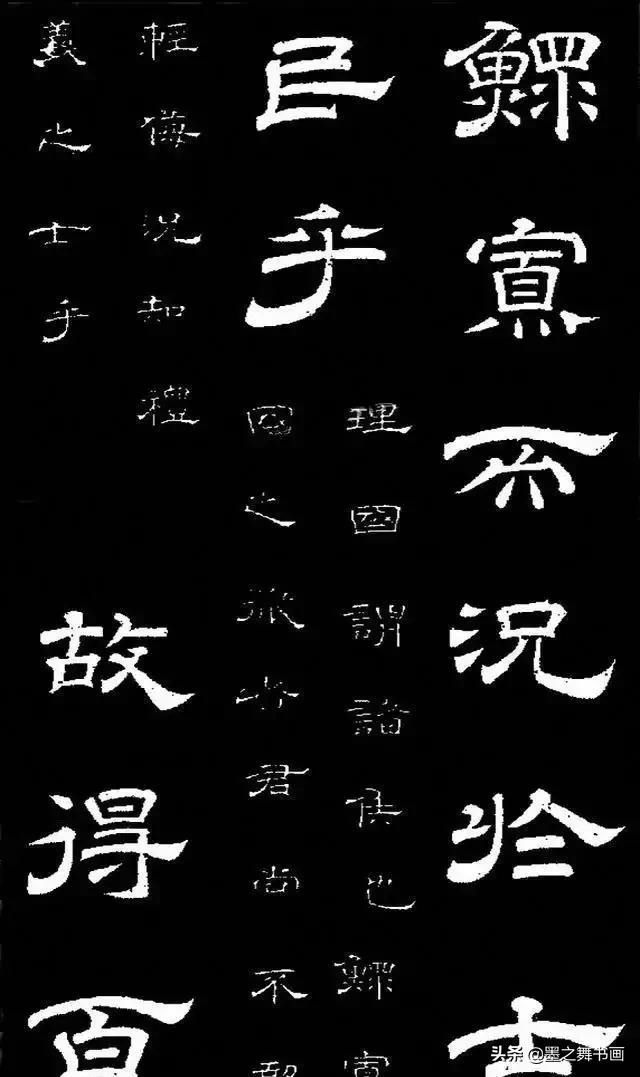 鰥寡而況於士
民乎
理國謂諸侯也鰥寡
國之微者君尚不敢
輕侮況知禮
義之士乎
故得百
头条 @墨之舞书画